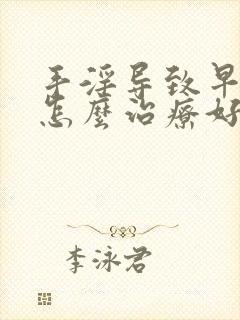 手淫导致早
怎麼治療好
李泳君